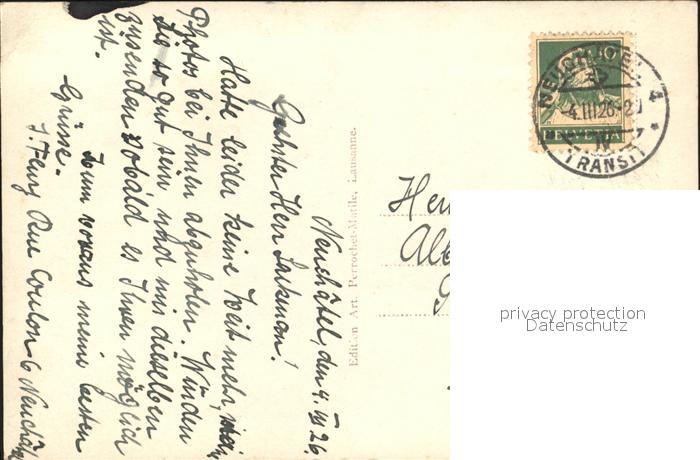 Neuchâtel, den 4. III 26.
Geehrter Herr
Habe leider keine Zeit mehr, meine
Photos bei Ihnen abzuholen. Würden
Sie so gut sein und mir dieselben
zusenden sobald es Ihnen möglich
ist.
Zum voraus meine besten
Grüsse.
Rue Coulon 6 Neuchâtel
Edition Art. Perrochet-Matile, Lausanne.
10
HELVETIA
NEUCHATEL
4
-4.III.26.
TRANSIT
privacy protection
Datenschutz